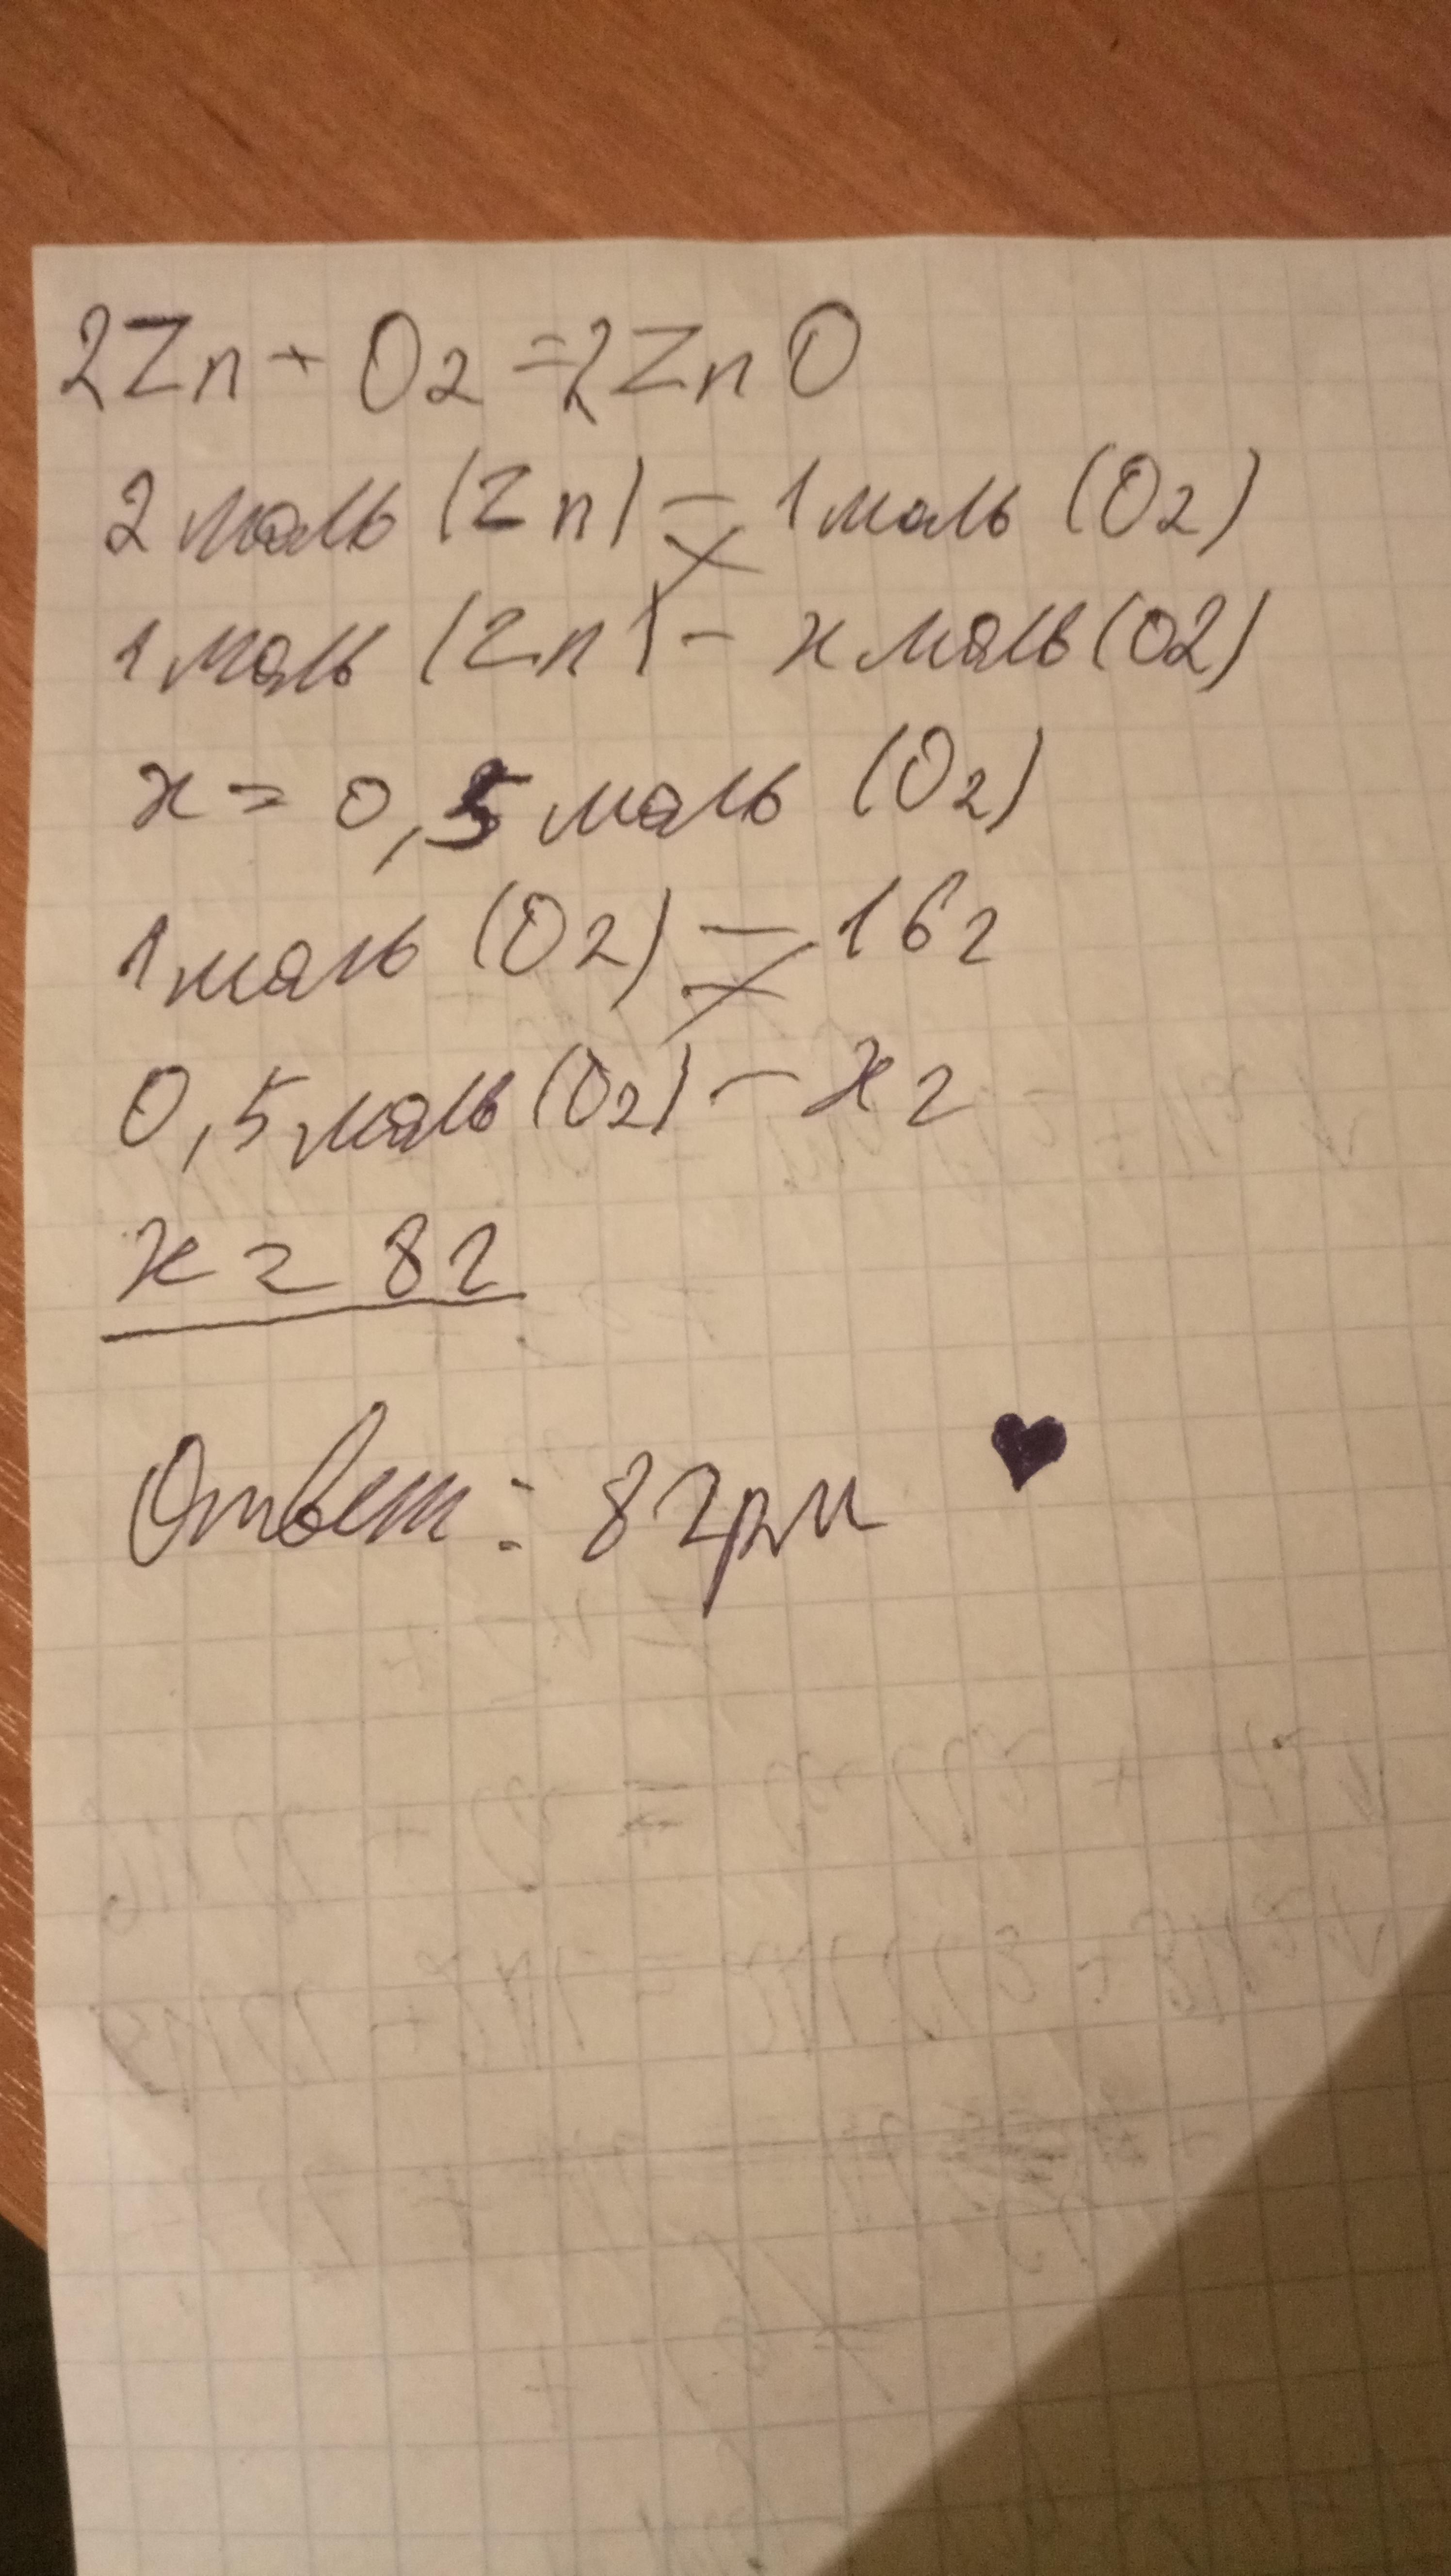 2Zn + O2 = 2ZnO
2 моль (Zn) - 1 моль (O2)
1 моль (Zn) - x моль (O2)
x = 0,5 моль (O2)
1 моль (O2) - 16 г
0,5 моль (O2) - x г
x = 8 г
Ответ: 8 грм